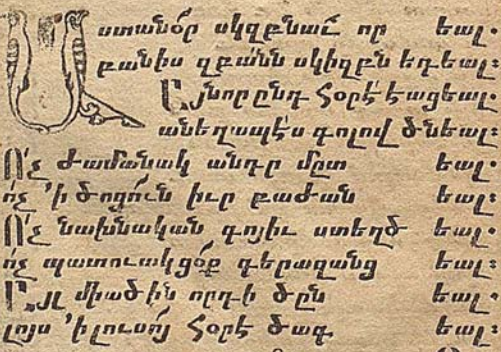 Աստանօր սկզբնաւ որ եալ.
բանիս զբա՛նն սկիզբն եդեալ:
Այնոր ընդ Հօրէ էացեալ.
անեղապէս գոլով ծնեալ:
Ո՛չ ժամանակ անդր մըտ եալ.
ո՛չ ՚ի ծոցոյն իւր բաժան եալ.
Ո՛չ նախնական գոյիւ ստեղծ եալ.
ո՛չ պատուակցօք գերազանց եալ:
Այլ միածին որդի ծըն եալ.
լոյս ՚ի լուսոյ Հօրէ ծագ եալ: